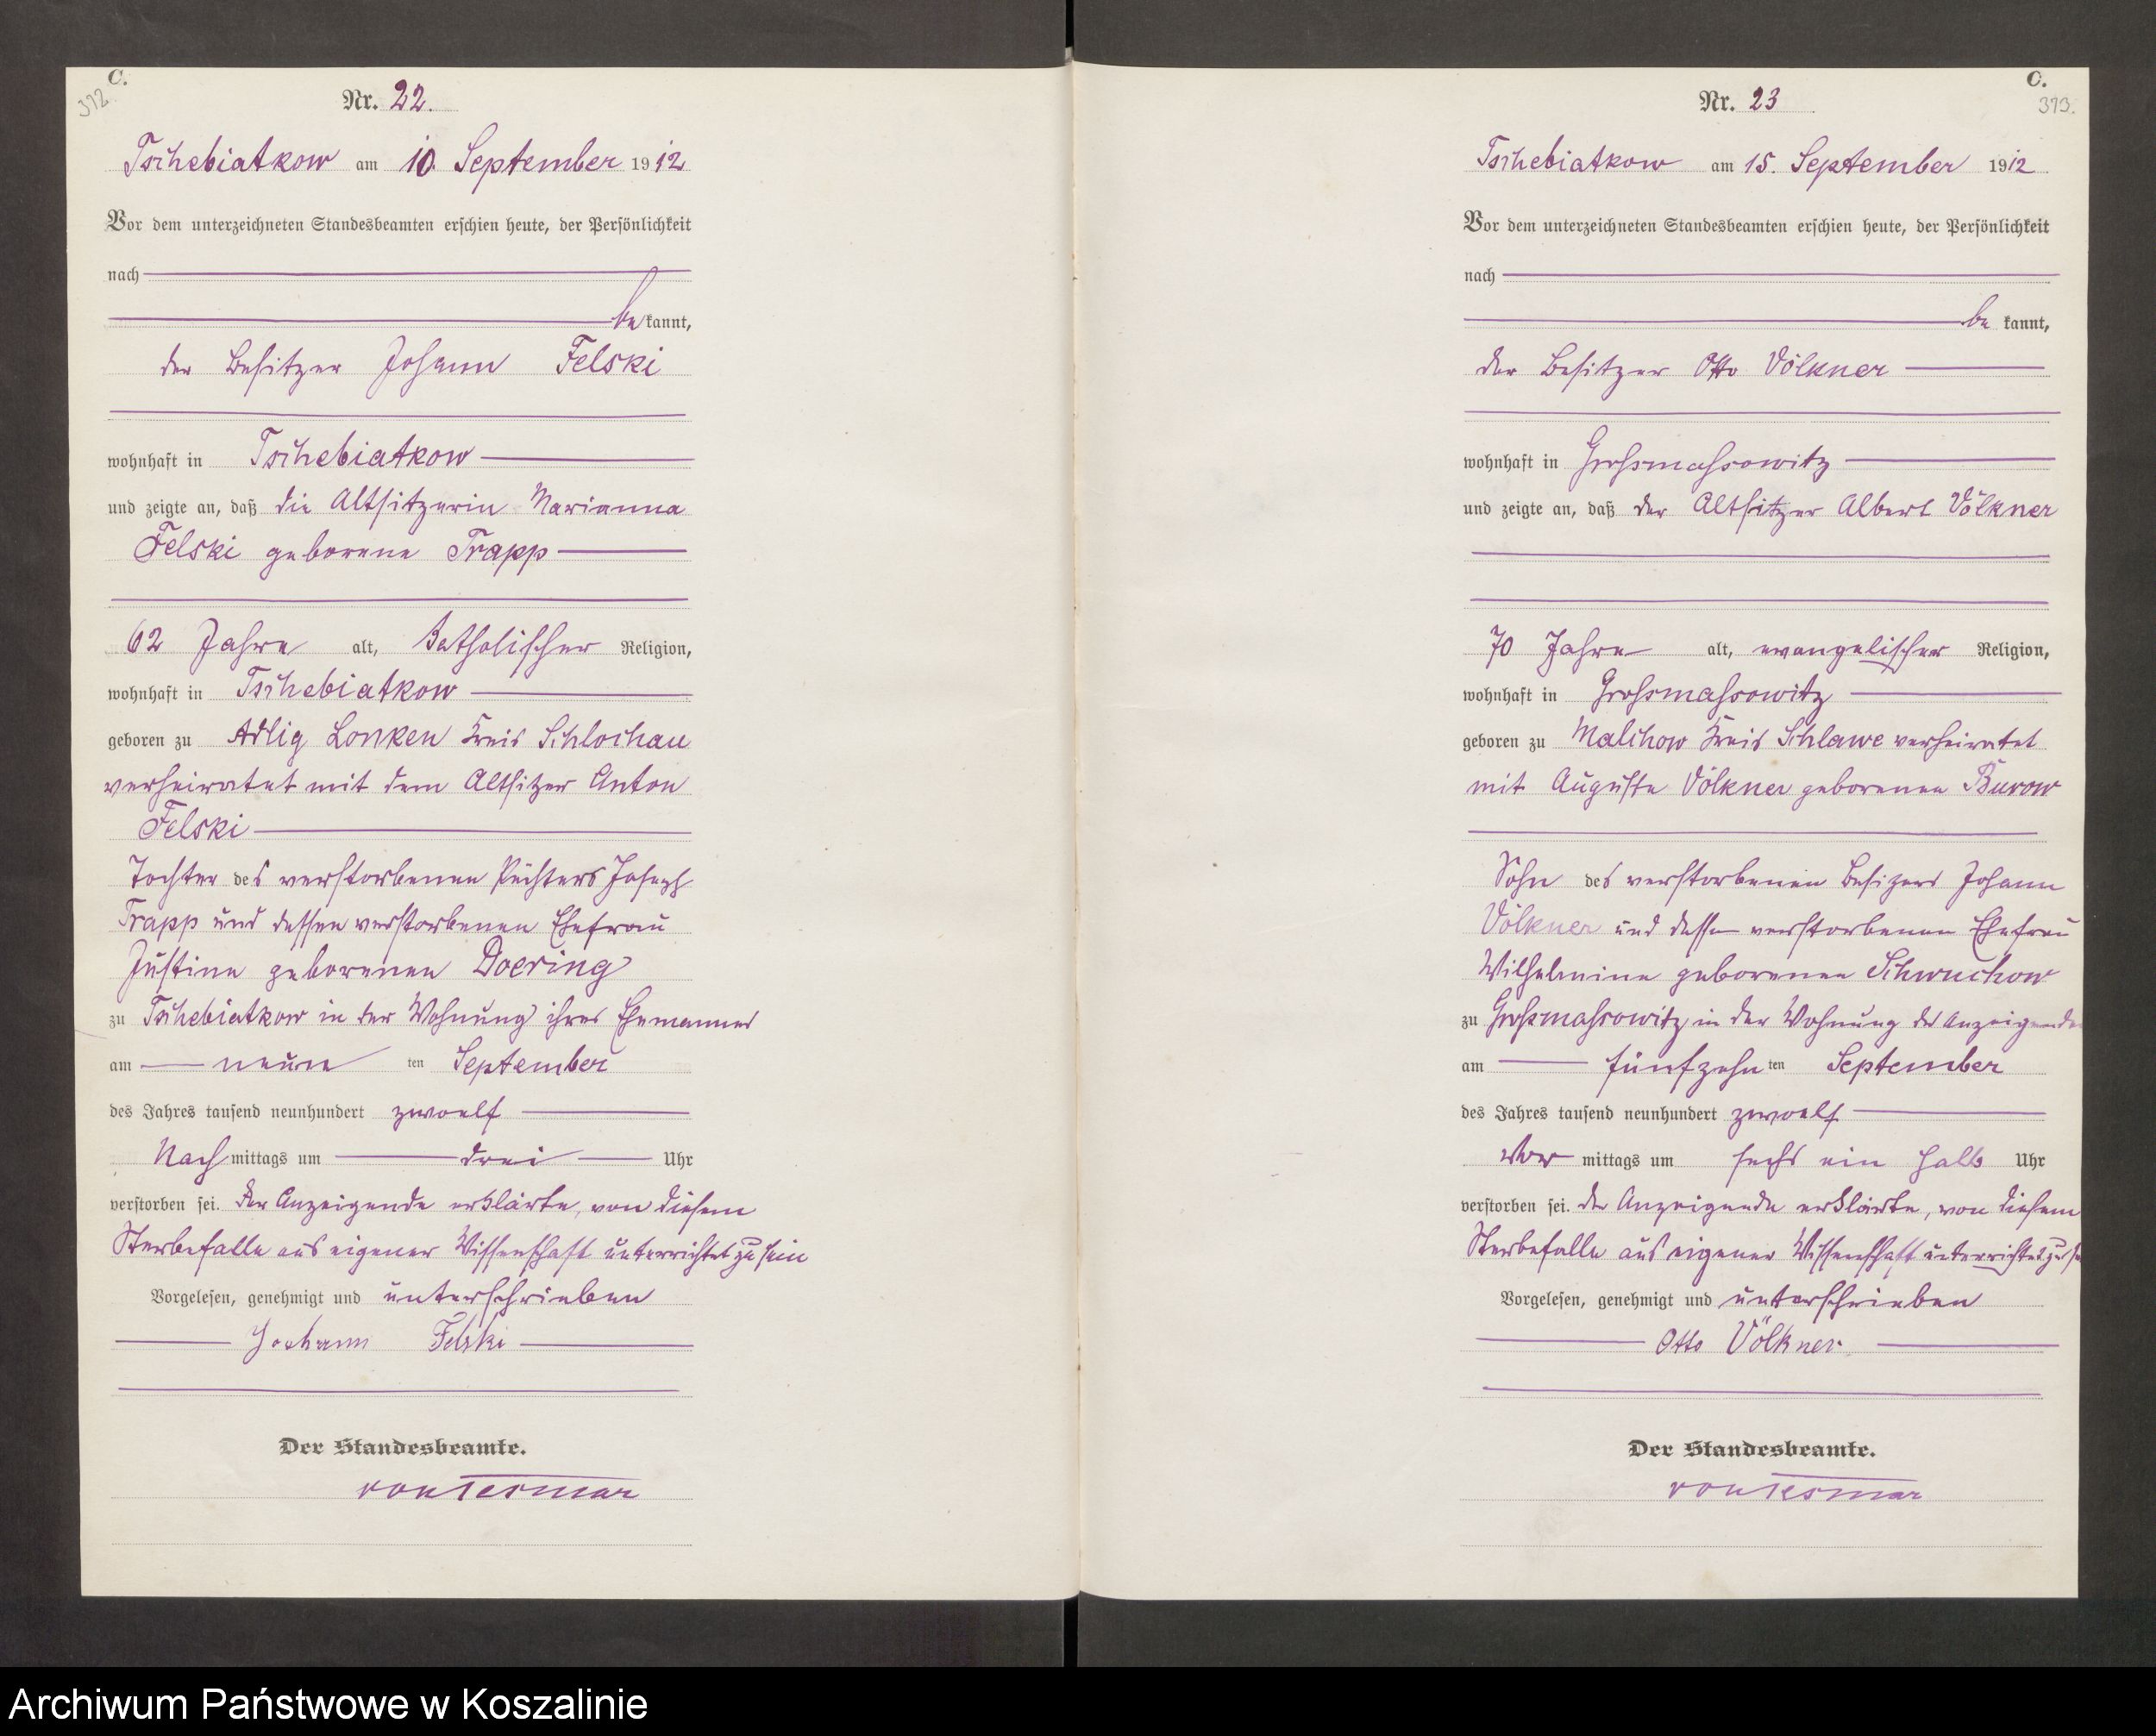 C.
372.
Nr. 22.
Tschebiatkow am 10. September 1912
Vor dem unterzeichneten Standesbeamten erschien heute, der Persönlichkeit
nach
be kannt,
der Besitzer Johann Felski
wohnhaft in Tschebiatkow
und zeigte an, daß die Altsitzerin Marianna
Felski geborene Trapp
62 Jahre alt, katholischer Religion,
wohnhaft in Tschebiatkow
geboren zu Adlig Lonken Kreis Schlochau
verheiratet mit dem Altsitzer Anton
Felski
Tochter des verstorbenen Pächters Joseph
Trapp und dessen verstorbenen Ehefrau
Justine geborenen Doering
zu Tschebiatkow in der Wohnung ihres Ehemannes
am neun ten September
des Jahres tausend neunhundert zwoelf
Nach mittags um drei Uhr
verstorben sei. Der Anzeigende erklärte, von diesem
Sterbefalle aus eigener Wissenschaft unterrichtet zu sein
Vorgelesen, genehmigt und unterschrieben
Johann Felski
Der Standesbeamte.
von Tesmar
C.
373.
Nr. 23
Tschebiatkow am 15. September 1912
Vor dem unterzeichneten Standesbeamten erschien heute, der Persönlichkeit
nach
be kannt,
der Besitzer Otto Völkner
wohnhaft in Großmassowitz
und zeigte an, daß der Altsitzer Albert Völkner
70 Jahre alt, evangelischer Religion,
wohnhaft in Großmassowitz
geboren zu Malchow Kreis Schlawe verheiratet
mit Auguste Völkner geborenen Burow
Sohn des verstorbenen Besizers Johann
Völkner und dessen verstorbenen Ehefrau
Wilhelmine geborenen Schwuchow
zu Großmassowitz in der Wohnung des Anzeigenden
am fünfzehn ten September
des Jahres tausend neunhundert zwoelf
Vor mittags um sechs ein halb Uhr
verstorben sei. Der Anzeigende erklärte, von diesem
Sterbefalle aus eigener Wissenschaft unterrichtet zu
Vorgelesen, genehmigt und unterschrieben
Otto Völkner.
Der Standesbeamte.
von Tesmar
Archiwum Państwowe w Koszalinie